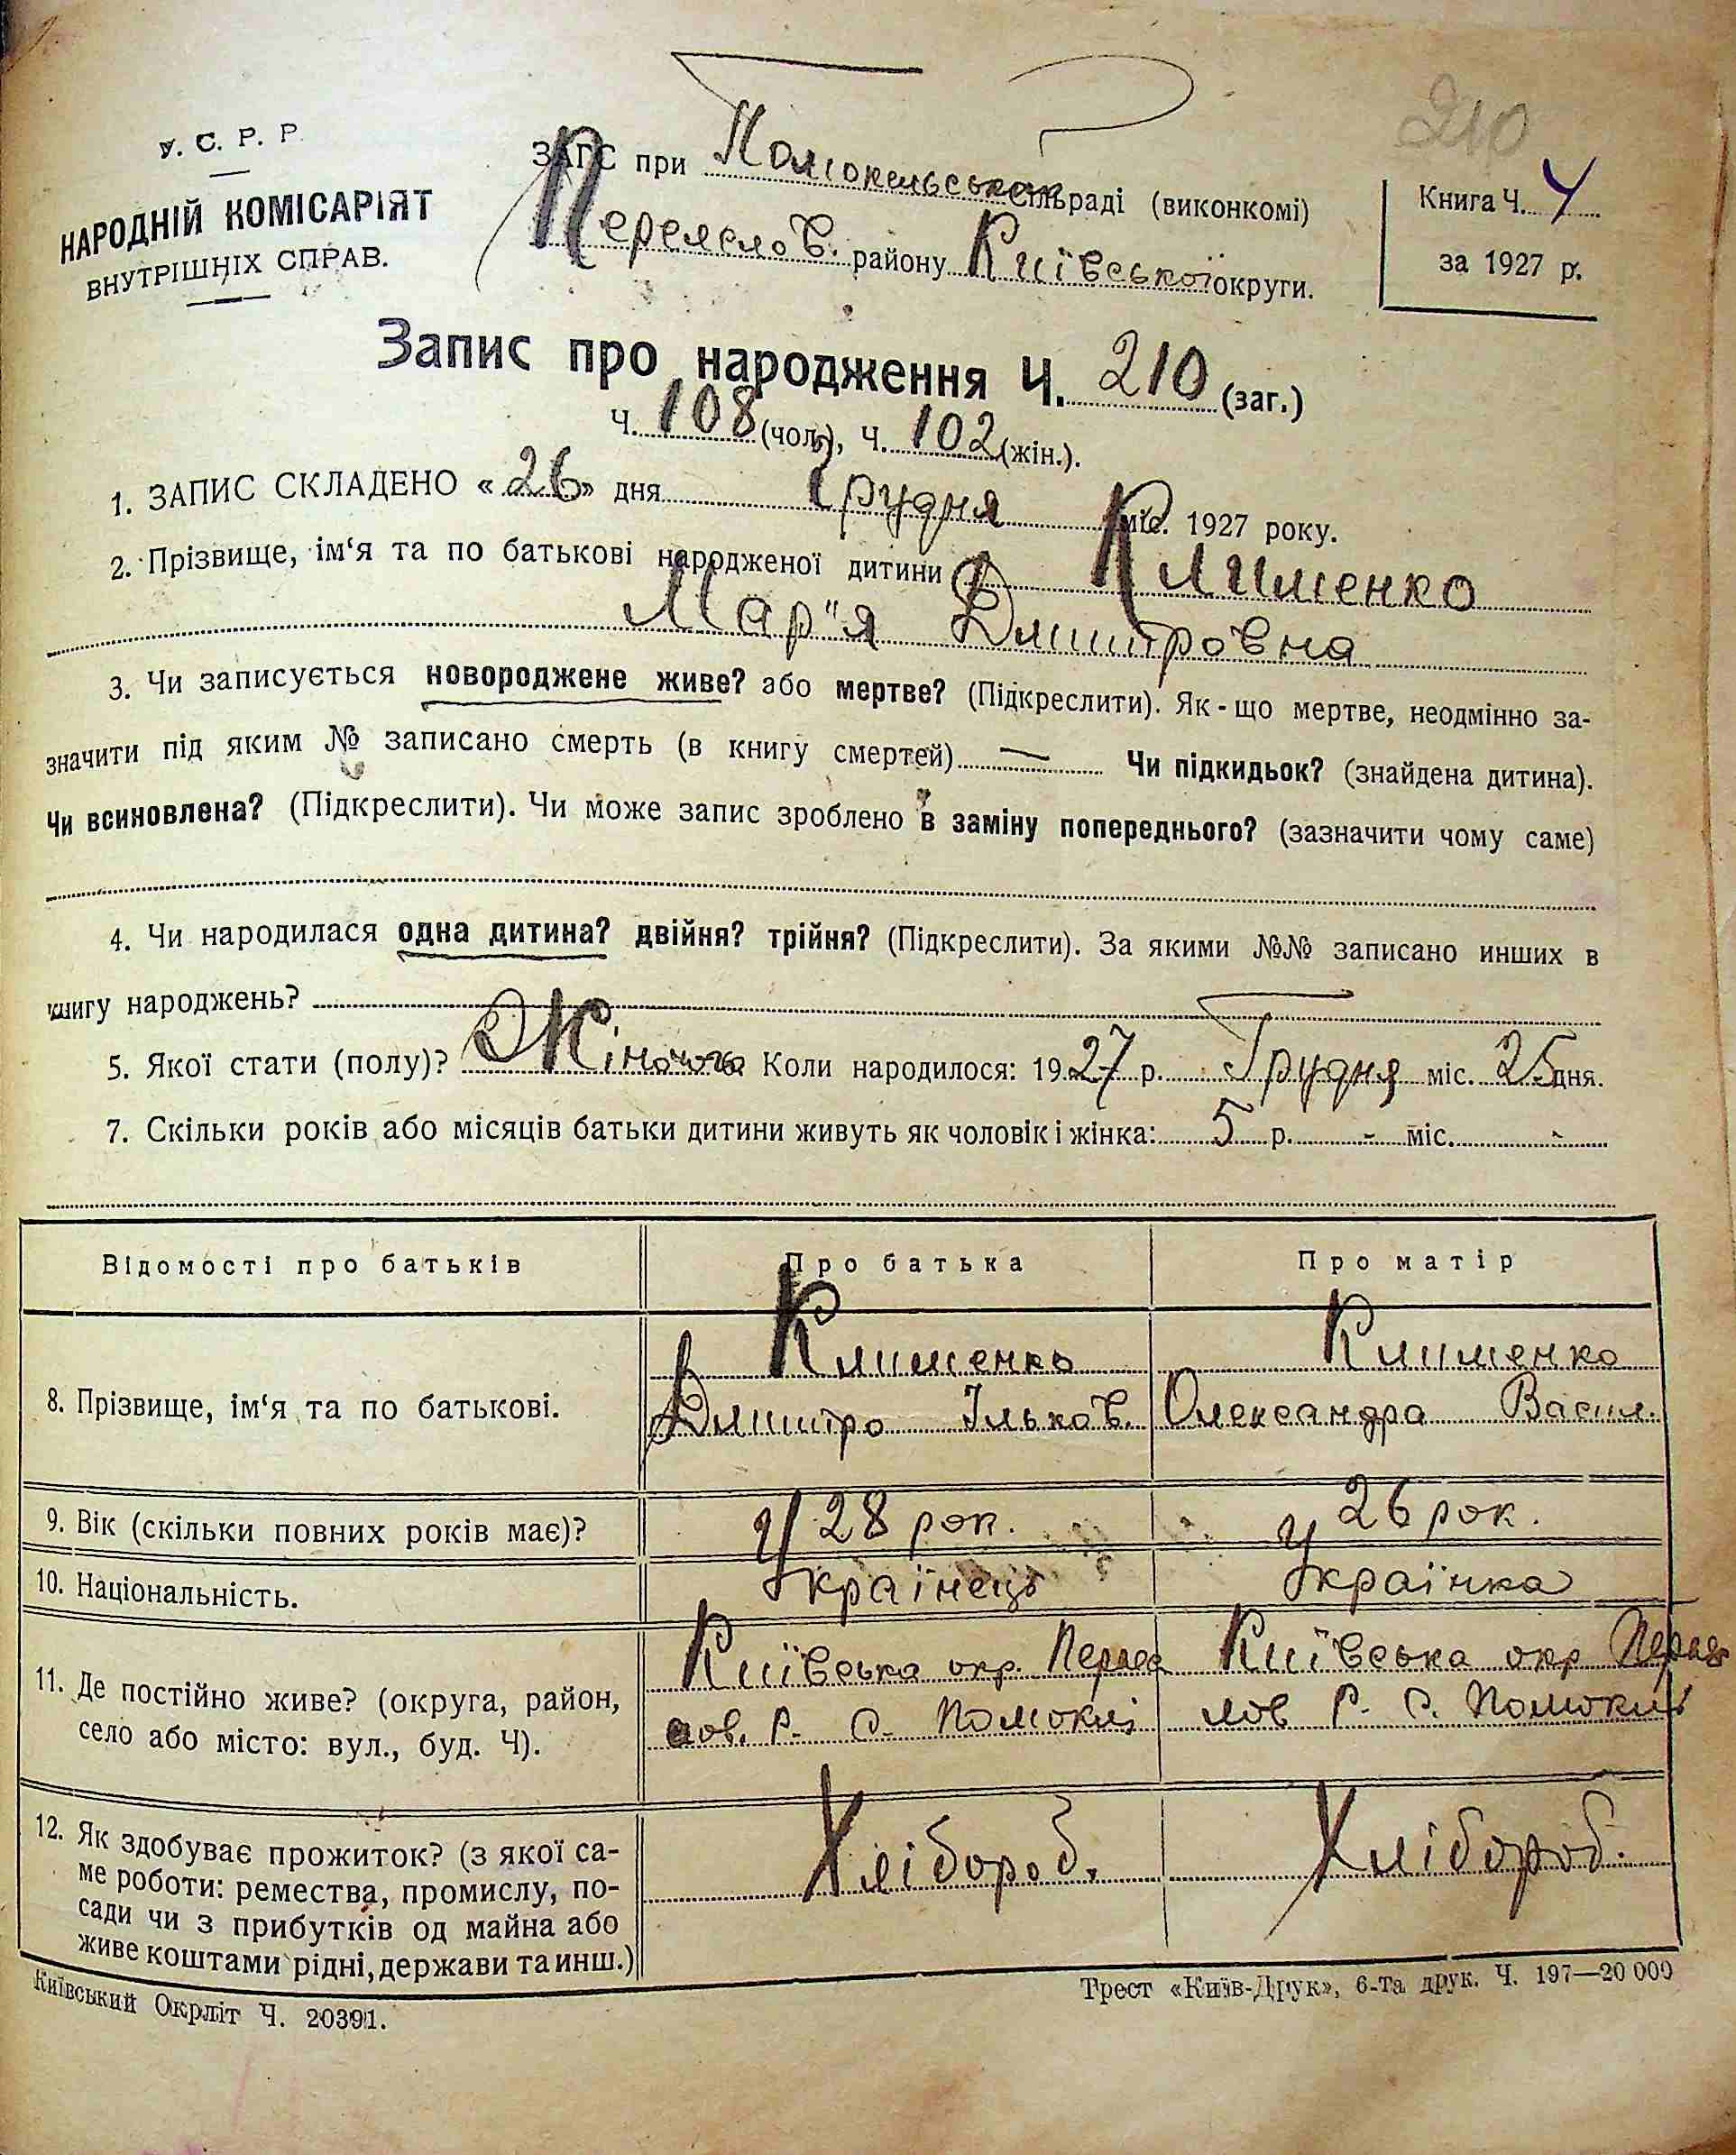 210
У. С. Р. Р.
НАРОДНІЙ КОМІСАРІЯТ
ВНУТРІШНІХ СПРАВ.
ЗАГС при Помокельський сільраді (виконкомі)
Переяслов. району Київської округи.
Книга Ч. 4
за 1927 р.
Запис про народження Ч. 210 (заг.)
Ч. 108 (чол.), Ч. 102 (жін.).
1. ЗАПИС СКЛАДЕНО « 26 » дня Грудня міс. 1927 року.
2. Прізвище, ім‘я та по батькові народженої дитини Клименко
Мар"я Дмитровна
3. Чи записується новороджене живе? або мертве? (Підкреслити). Як-що мертве, неодмінно за-
значити під яким № записано смерть (в книгу смертей) — Чи підкидьок? (знайдена дитина).
Чи всиновлена? (Підкреслити). Чи може запис зроблено в заміну попереднього? (зазначити чому саме)
4. Чи народилася одна дитина? двійня? трійня? (Підкреслити). За якими №№ записано инших в
книгу народжень?
5. Якої стати (полу)? Жіночого Коли народилося: 1927 р. Грудня міс. 25 дня.
7. Скільки років або місяців батьки дитини живуть як чоловік і жінка: 5 р. - міс. -
Відомості про батьків
Про батька
Про матір
8. Прізвище, ім‘я та по батькові.
Клименко
Дмитро Ільков.
Клименко
Олександра Васил.
9. Вік (скільки повних років має)?
28 рок.
26 рок.
10. Національність.
Українець
Українка
11. Де постійно живе? (округа, район,
село або місто: вул., буд. Ч).
Київська окр. Перея
слов. Р. С. Помоклі
Київська окр Перея
слов Р. С. Помоклі
12. Як здобуває прожиток? (з якої са-
ме роботи: ремества, промислу, по-
сади чи з прибутків од майна або
живе коштами рідні, держави та инш.)
Хлібороб.
Хлібороб.
Київський Окрліт Ч. 20391.
Трест «Київ-Друк», 6-та друк. Ч. 197—20 000